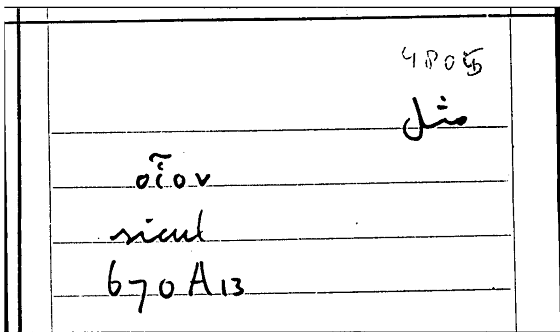 4805
مثل
οἷον
sicut
670A13